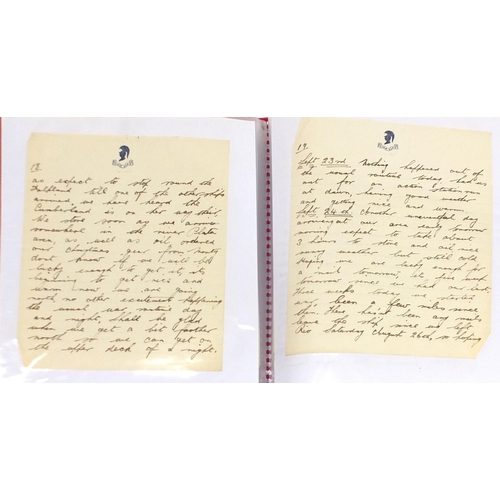 18
as expect to stop round the
Falkland till one of the other ships
arrived, we have heard the
Cumberland is on her way
be store soon as we arrive
somewhere in the river Plate
area, as well as oil,
our Christmas gear from
dont know if we will be
lucky enough to get it, its
beginning to get nice and
warm now we are going
north no other excitement happening
the usual war routine day
and night, shall be glad
when we get a bit further
north so we can get on
the upper deck of a night.
19
Sept 23rd Nothing happened out of
the usual routine today had us
out for an action station run
at dawn, having good weather
and getting nice and warm
Sept 24th Another uneventful day
arriving at our area early tomorrow
morning expect to take about
3 hours to store and oil nice
sunny weather but still cold
Hoping we are lucky enough for
a mail tomorrow, it
tomorrow since we had our last,
three weeks today we started
away been a few miles since
then. Have not been any mails
leave the ship since we left
Rio Saturday August 26th, so hoping